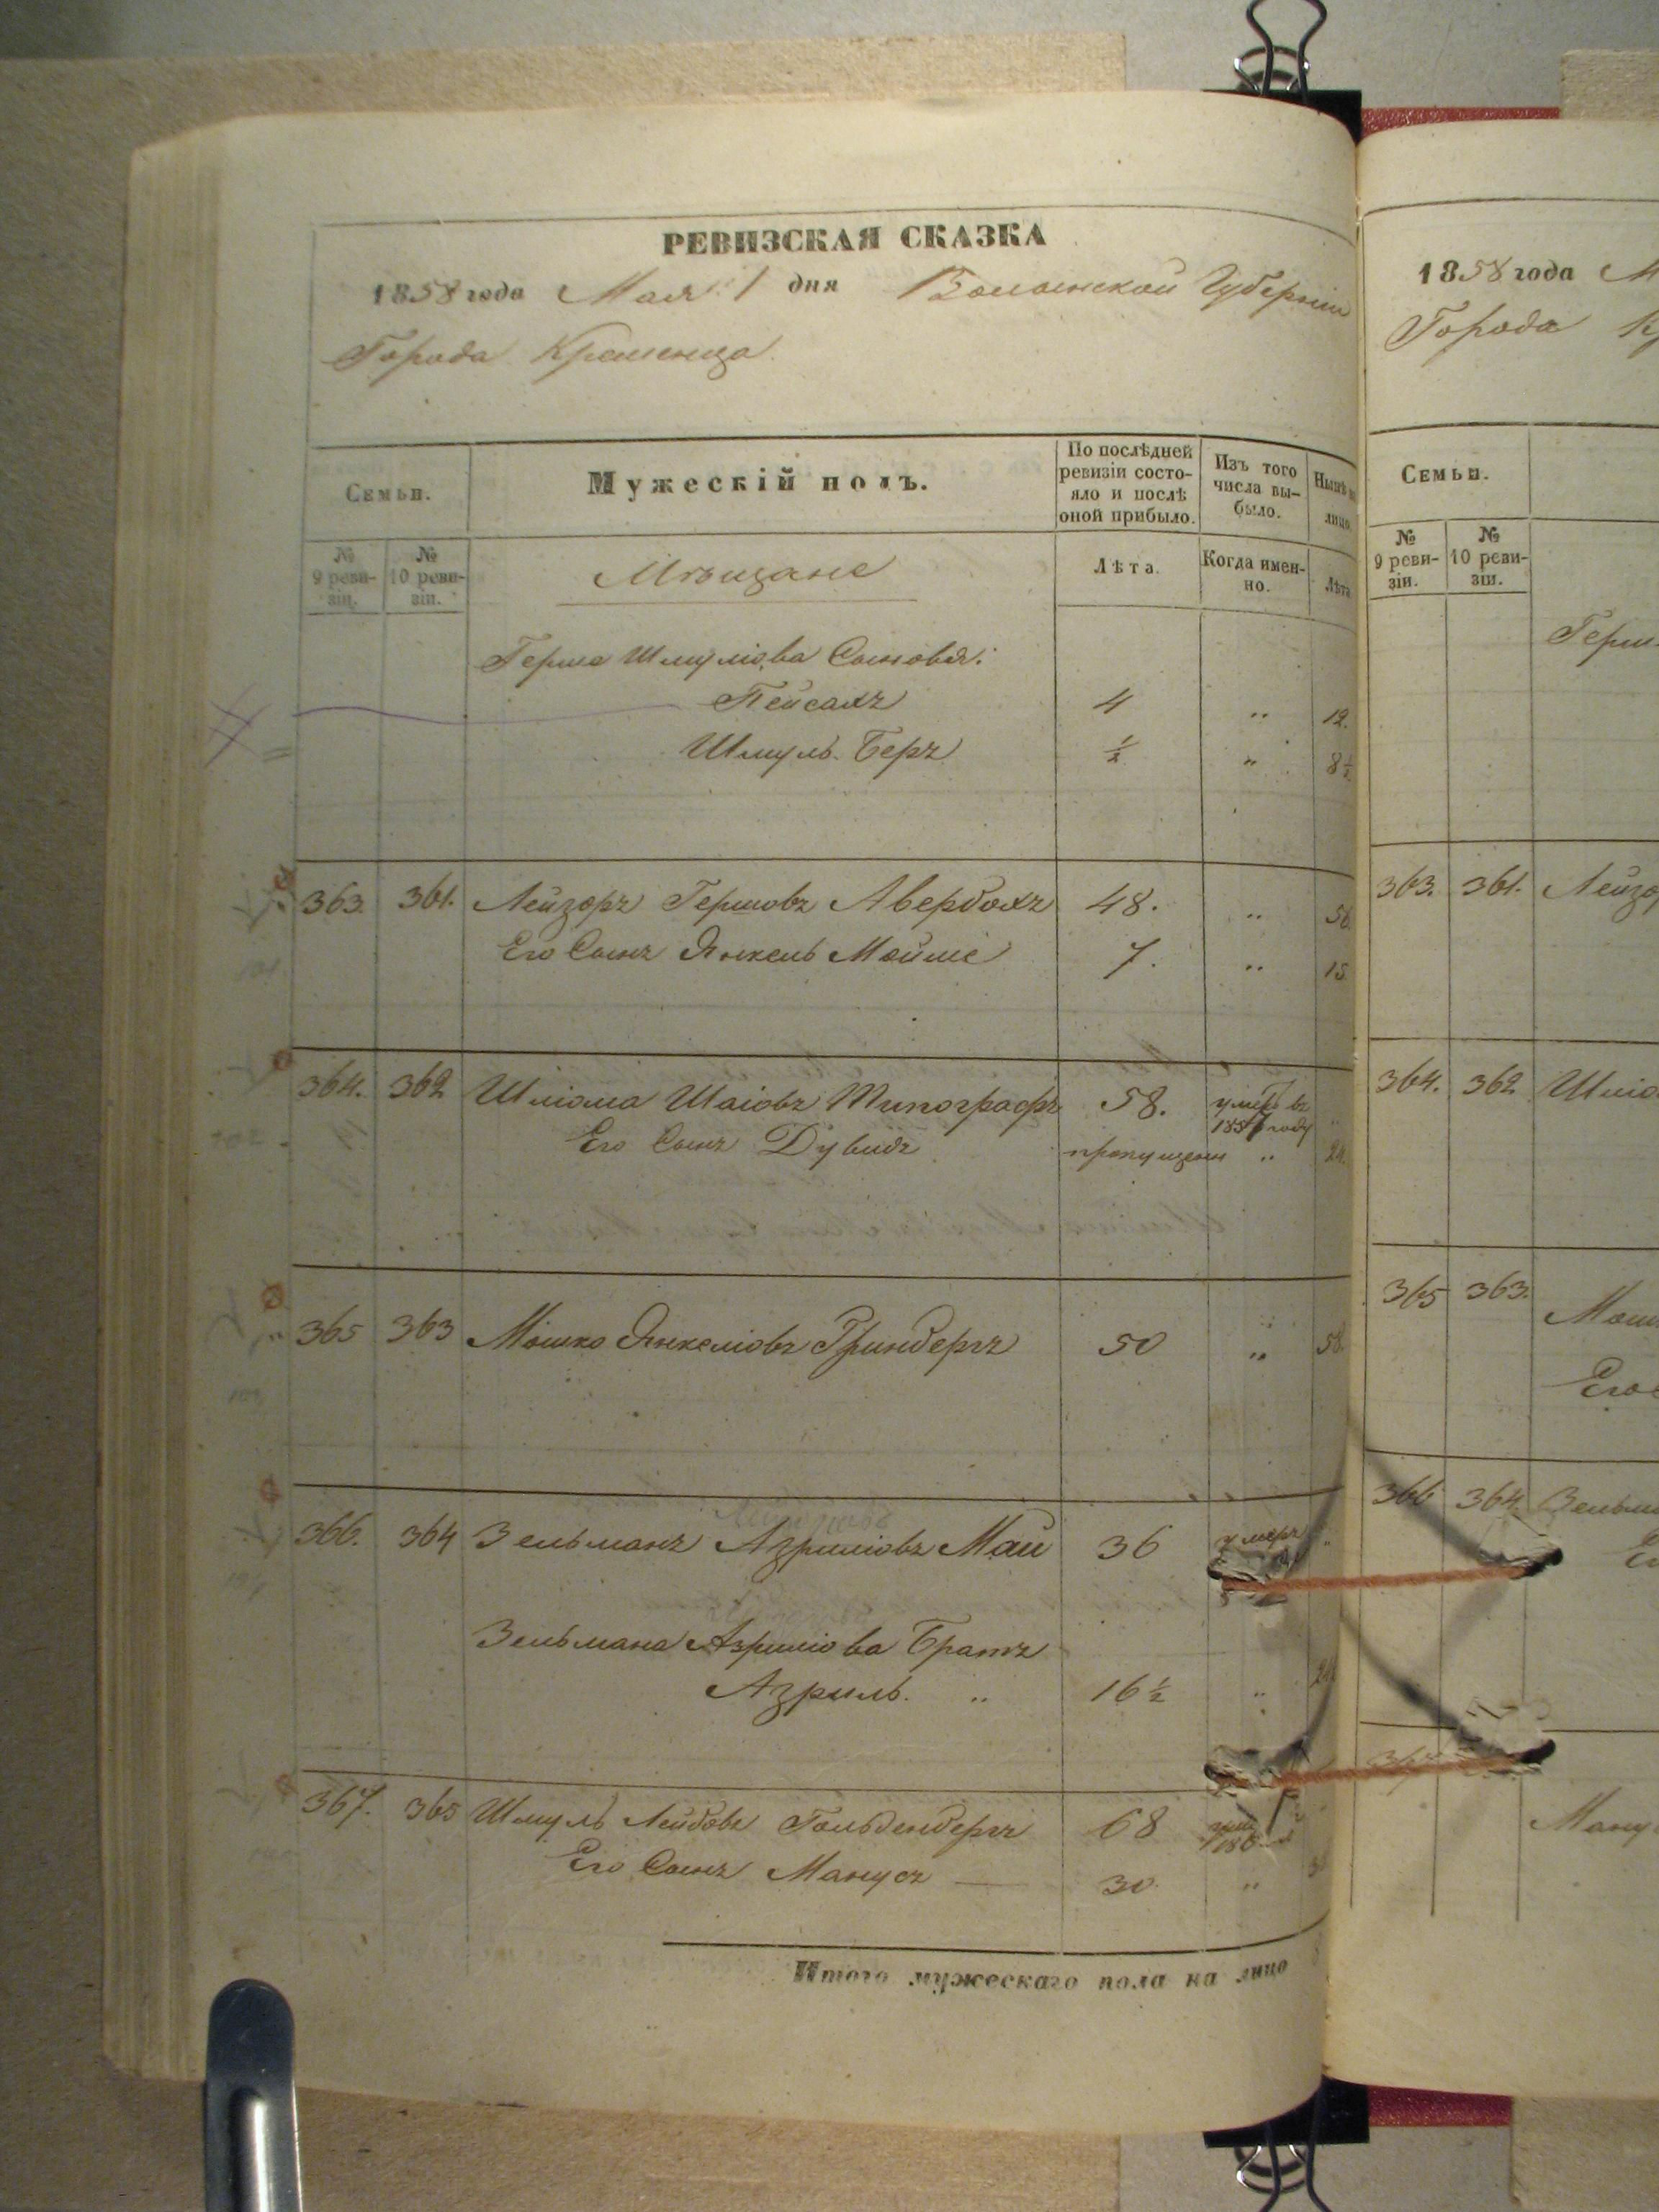 РЕВИЗСКАЯ СКАЗКА
1858 года Мая 1 дня Волынской Губерніи
Города Кременца
Семьи.
Мужескій полъ.
По послѣдней ревизіи состояло и послѣ оной прибыло.
Изъ того числа выбыло.
Нынѣ на лицо
№ 9 ревизіи.
№ 10 ревизіи.
Мѣщане
Лѣта.
Когда именно.
Лѣта
Герша Шмуліова Сыновья:
Пейсахъ 4 " 12.
Шмуль Беръ ½ " 8½
363. 361. Лейзоръ Гершовъ Авербахъ 48. " 56.
Его Сынъ Янкель Мойше 7. " 15
364. 362 Шліома Шаіовъ Типографъ 58. умеръ въ 1857 году "
Его Сынъ Дувидъ пропущенъ " 24.
365 363 Мошко Янкеліовъ Гринбергъ 50 " 58.
366. 364 Зельманъ Азриліовъ Май 36 умеръ "
Зельмана Азриліова Братъ
Азриль. " 16½ " 24
367. 365 Шмуль Лейбовъ Гольденбергъ 68
Его Сынъ Манусъ — 30 "
Итого мужескаго пола на лицо
1858 года М
Города К
Семьи.
№ 9 ревизіи.
№ 10 ревизіи.
Герш
363. 361. Лейзо
364. 362. Шліо
365 363. Мош
Его
366 364. Зельм
Ману